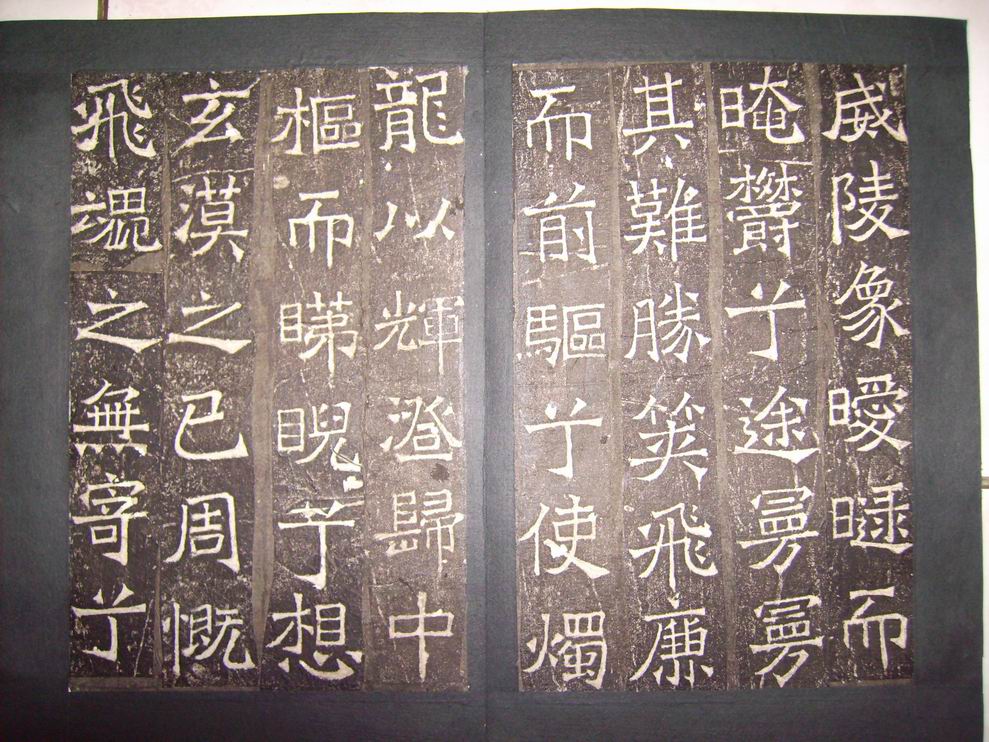 威陵象曖曃而
晻欝兮途曼曼
其難勝筴飛廉
而前驅兮使燭
龍以輝澄歸中
樞而睇睨兮想
玄漠之已周慨
飛魂之無寄兮